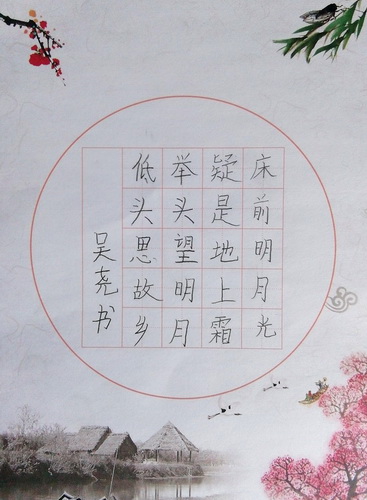 床前明月光
疑是地上霜
举头望明月
低头思故乡
吴尧书